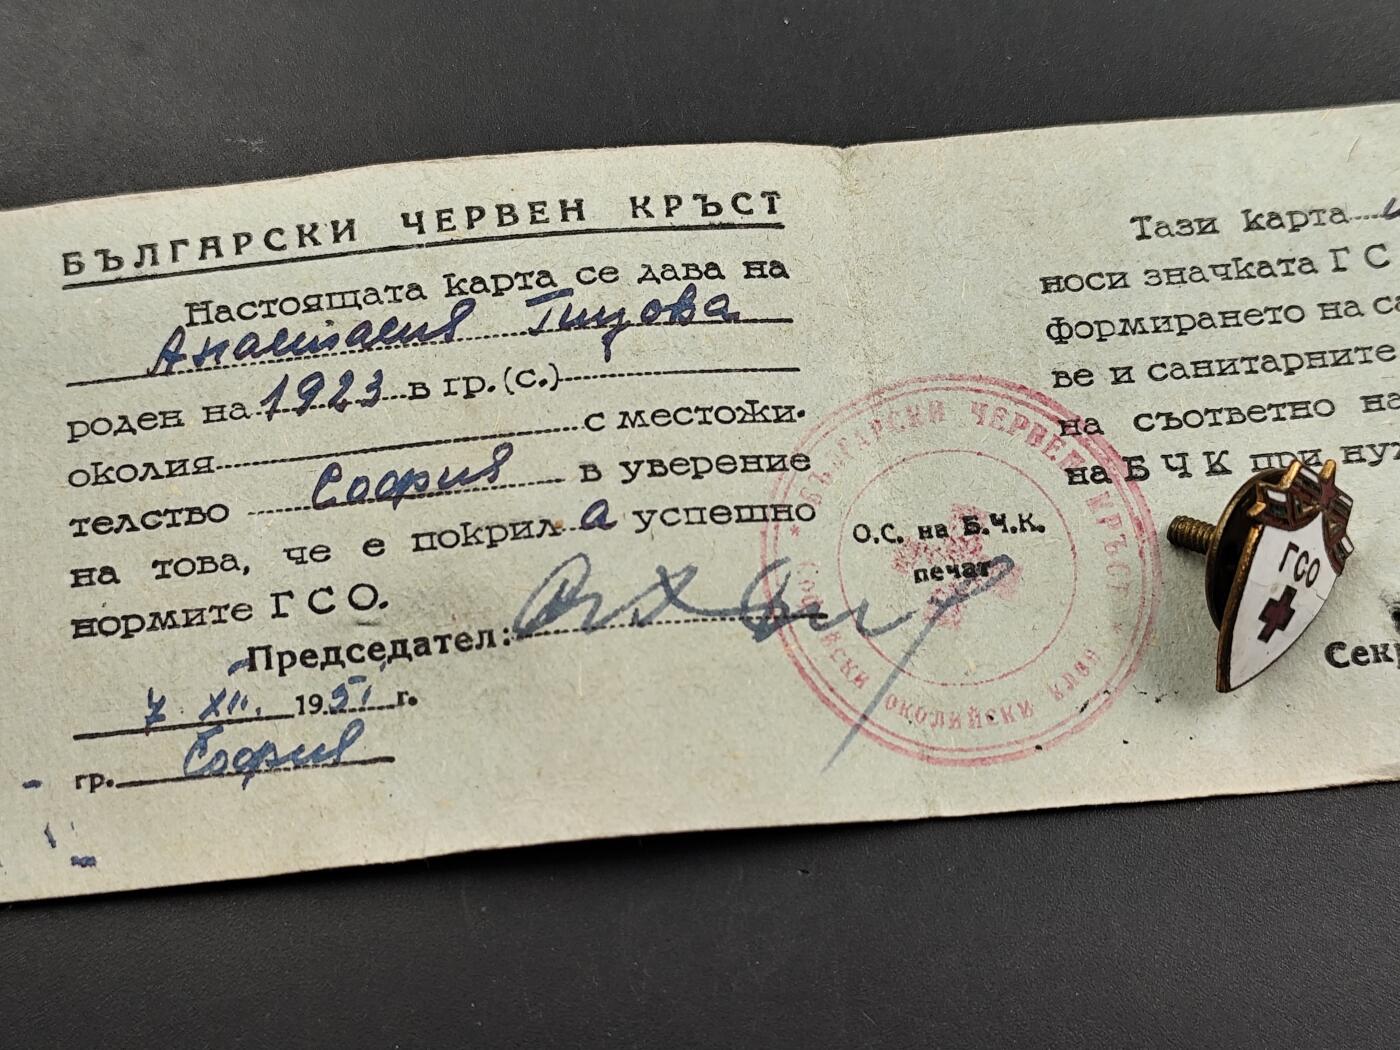 БЪЛГАРСКИ ЧЕРВЕН КРЪСТ
Настоящата карта се дава на
Анастасия
роден на 1923 в гр.(с.)
околия с местожи-
телство София в уверение
на това, че е покрил а успешно
нормите ГСО.
Председател:
7 XII. 1951 г.
гр. София
О.С. на Б.Ч.К.
печат
БЪЛГАРСКИ ЧЕРВЕН КРЪСТ
ОКОЛИЙСКИ КЛОН
Тази карта
носи значката ГС
формирането на са
ве и санитарните
на съответно на
на БЧК при нуж
ГСО
Секр